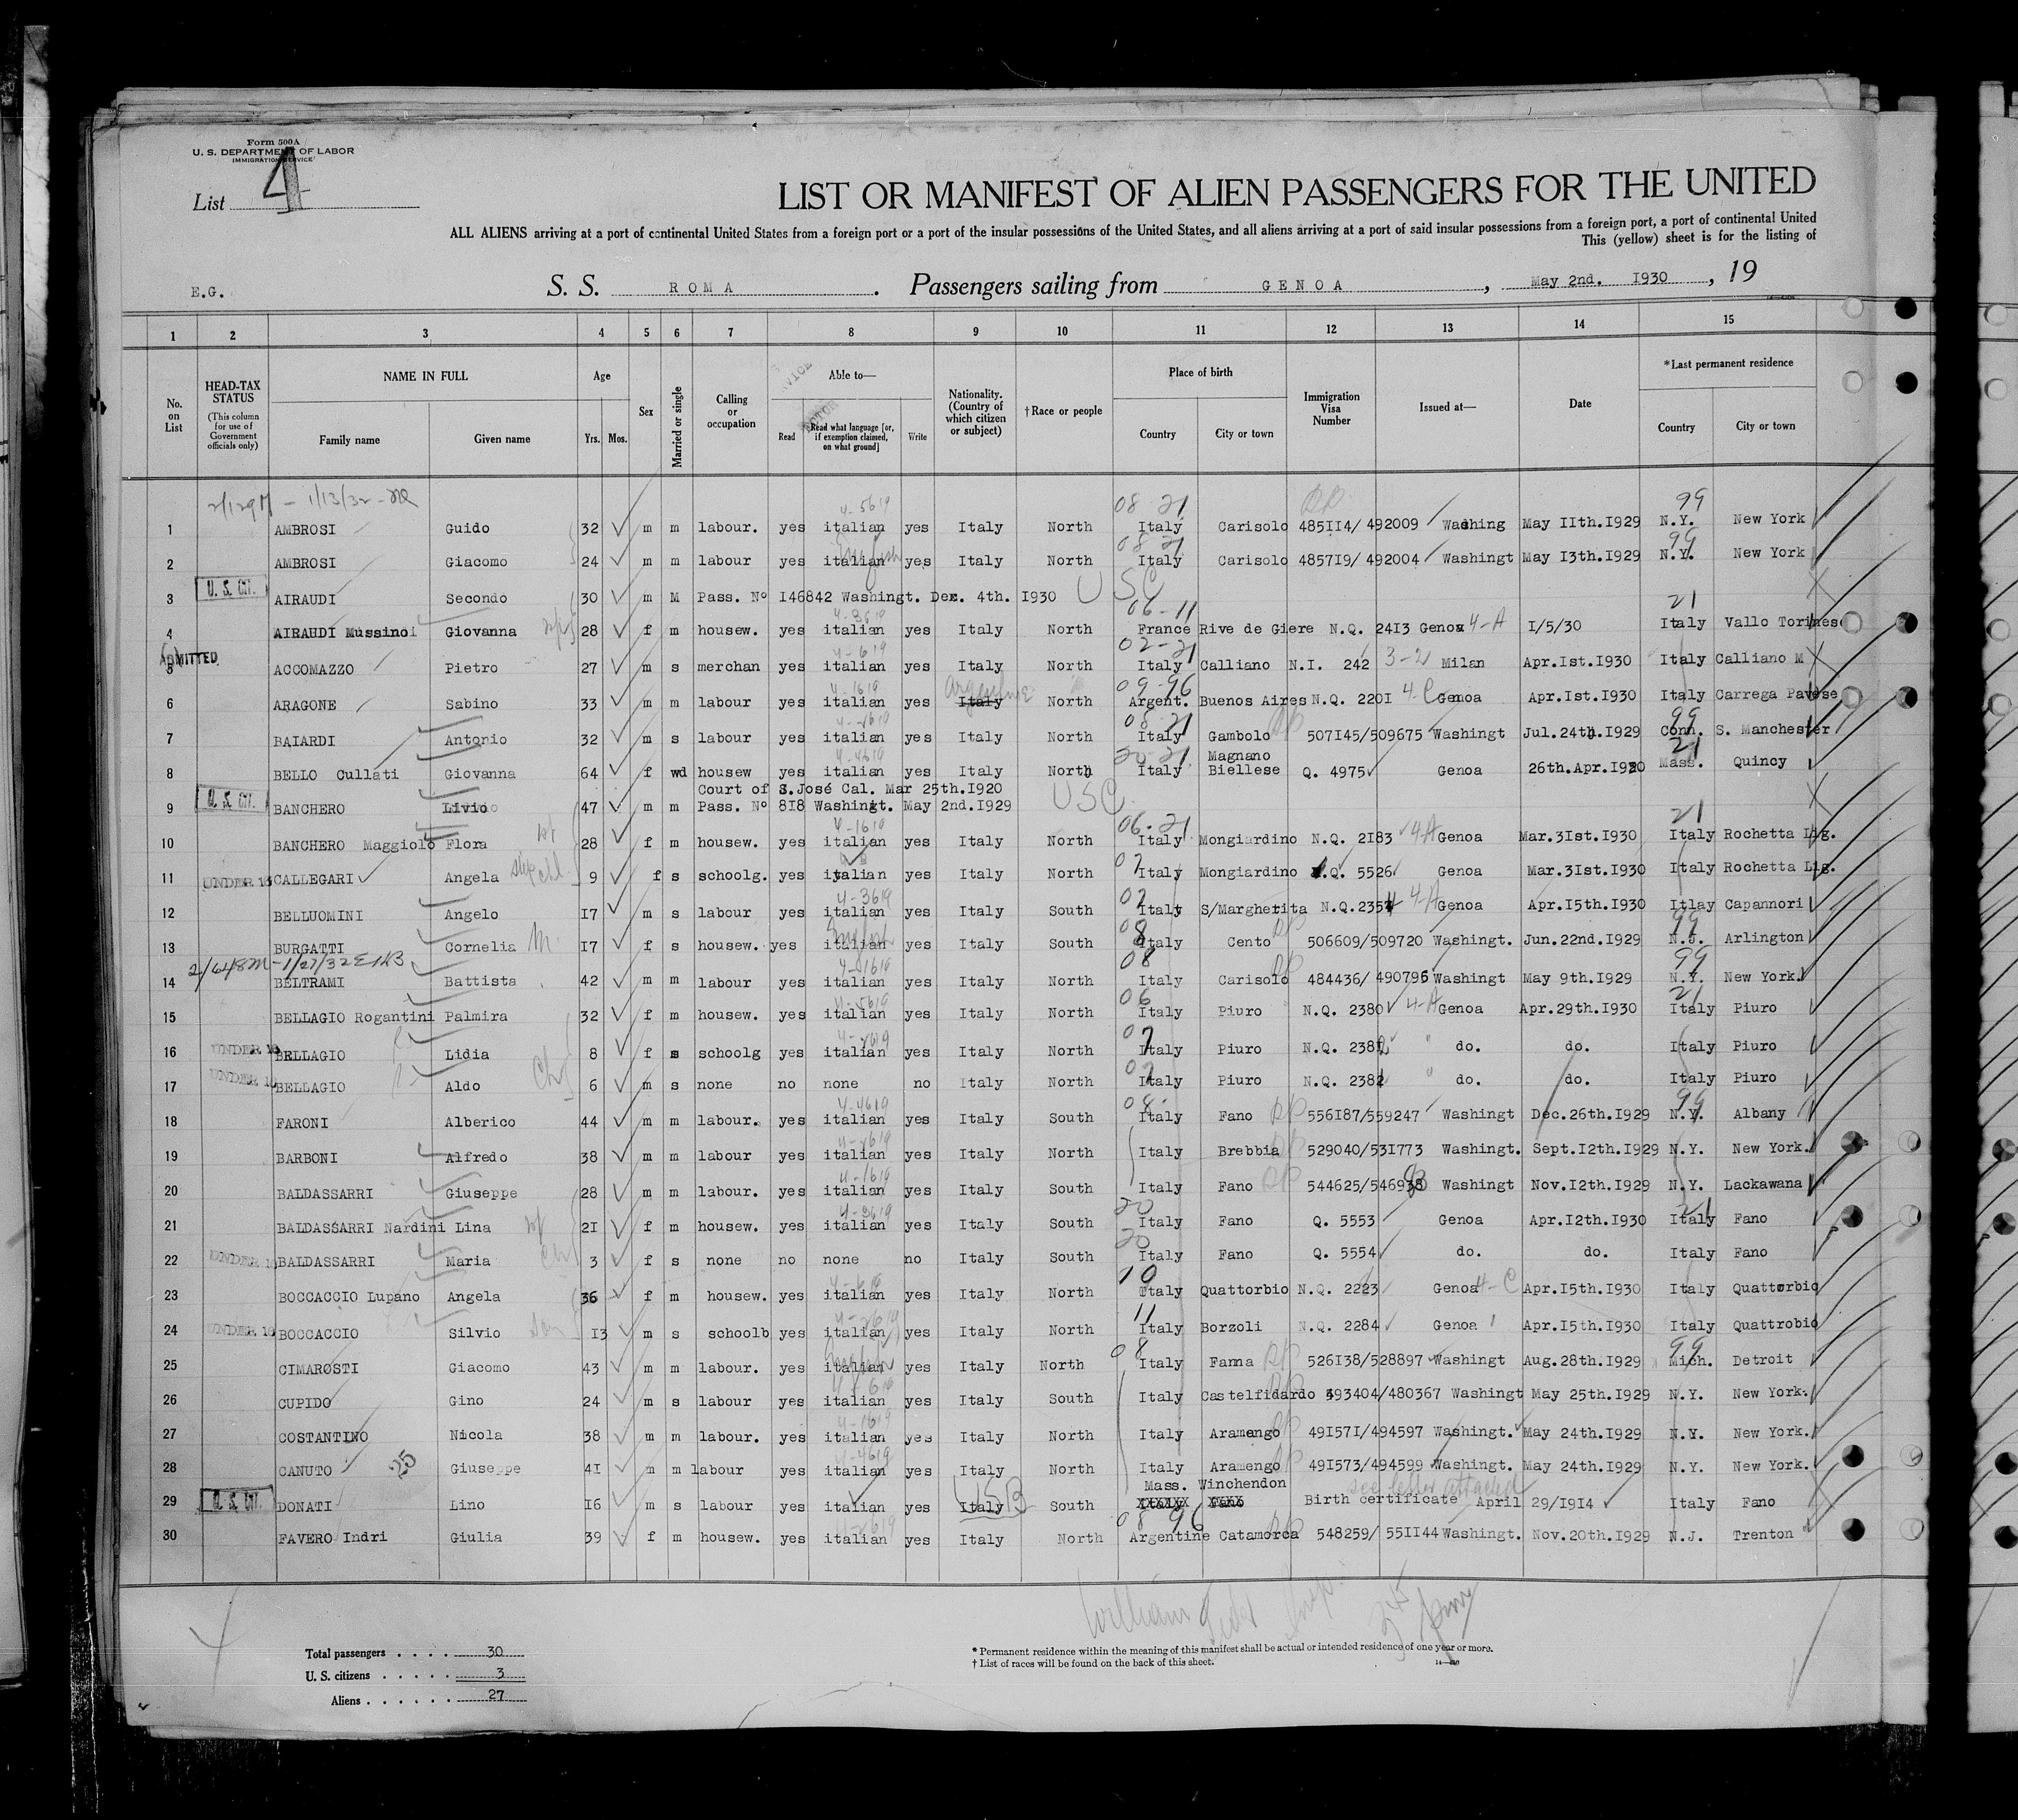 Form 500A
U. S. DEPARTMENT OF LABOR
IMMIGRATION SERVICE
List 4
LIST OR MANIFEST OF ALIEN PASSENGERS FOR THE UNITED
ALL ALIENS arriving at a port of continental United States from a foreign port or a port of the insular possessions of the United States, and all aliens arriving at a port of said insular possessions from a foreign port, a port of continental United
This (yellow) sheet is for the listing of
E.G. S. S. ROMA . Passengers sailing from GENOA , May 2nd. I930 , 19
1 2 3 4 5 6 7 8 9 10 11 12 13 14 15
No. on List HEAD-TAX STATUS (This column for use of Government officials only) NAME IN FULL Family name Given name Age Yrs. Mos. Sex Married or single Calling or occupation Able to— Read Read what language [or, if exemption claimed, on what ground] Write Nationality. (Country of which citizen or subject) †Race or people Place of birth Country City or town Immigration Visa Number Issued at— Date *Last permanent residence Country City or town
2/129M - 1/13/32 4-5619 08-21 99
1 AMBROSI Guido 32 m m labour. yes italian yes Italy North Italy Carisolo 485II4/ 492009 Washing May IIth.I929 N.Y. New York
English 08-21 99
2 AMBROSI Giacomo 24 m m labour yes italian yes Italy North Italy Carisolo 4857I9/ 492004 Washingt May I3th.I929 N.Y. New York
3 U. S. Cit. AIRAUDI Secondo 30 m M Pass. Nº I46842 Washingt. Dec. 4th. I930 USC
06-11 21
4 AIRAUDI Mussinoi Giovanna 28 f m housew. yes italian yes Italy North France Rive de Giere N.Q. 24I3 Genoa 4-A I/5/30 Italy Vallo Torinese
4-619 02-21
5 ADMITTED ACCOMAZZO Pietro 27 m s merchan yes italian yes Italy North Italy Calliano N.I. 242 3-21 Milan Apr.Ist.I930 Italy Calliano M
4-1619 Argentine 09-96
6 ARAGONE Sabino 33 m m labour yes italian yes Italy North Argent. Buenos Aires N.Q. 220I 4-C Genoa Apr.Ist.I930 Italy Carrega Pavese
08-21 99
7 BAIARDI Antonio 32 m s labour yes italian yes Italy North Italy Gambolo 507I45/509675 Washingt Jul.24th.I929 Conn. S. Manchester
4-4619 20-21 21
8 BELLO Cullati Giovanna 64 f wd housew yes italian yes Italy North Italy Magnano Biellese Q. 4975 Genoa 26th.Apr.I930 Mass. Quincy
Court of S.José Cal. Mar 25th.I920
9 U. S. Cit. BANCHERO Livio 47 m m Pass. Nº 8I8 Washingt. May 2nd.I929 USC
4-1619 06-21 21
10 BANCHERO Maggiolo Flora 28 f m housew. yes italian yes Italy North Italy Mongiardino N.Q. 2I83 4-A Genoa Mar.3Ist.I930 Italy Rochetta Lig.
11 UNDER 16 CALLEGARI Angela 9 f s schoolg. yes italian yes Italy North Italy Mongiardino Q. 5526 Genoa Mar.3Ist.I930 Italy Rochetta Lig.
4-3619 07
12 BELLUOMINI Angelo I7 m s labour yes italian yes Italy South Italy S/Margherita N.Q.2357 4-A Genoa Apr.I5th.I930 Itlay Capannori
English 08 99
13 BURGATTI Cornelia I7 f s housew. yes italian yes Italy South Italy Cento 506609/509720 Washingt. Jun.22nd.I929 N.J. Arlington
2/648M-1/27/32 08 99
14 BELTRAMI Battista 42 m m labour yes italian yes Italy North Italy Carisolo 484436/ 490796 Washingt May 9th.I929 N.Y. New York.
4-5619 06 21
15 BELLAGIO Rogantini Palmira 32 f m housew. yes italian yes Italy North Italy Piuro N.Q. 2380 4-A Genoa Apr.29th.I930 Italy Piuro
07
16 UNDER 16 BELLAGIO Lidia 8 f s schoolg yes italian yes Italy North Italy Piuro N.Q. 238I do. do. Italy Piuro
07
17 UNDER 16 BELLAGIO Aldo 6 m s none no none no Italy North Italy Piuro N.Q. 2382 do. do. Italy Piuro
4-4619 08 99
18 FARONI Alberico 44 m m labour. yes italian yes Italy South Italy Fano 556I87/559247 Washingt Dec.26th.I929 N.Y. Albany
19 BARBONI Alfredo 38 m m labour yes italian yes Italy North Italy Brebbia 529040/53I773 Washingt. Sept.I2th.I929 N.Y. New York.
4-1619
20 BALDASSARRI Giuseppe 28 m m labour. yes italian yes Italy South Italy Fano 544625/546938 Washingt Nov.I2th.I929 N.Y. Lackawana
4-3619 20 21
21 BALDASSARRI Nardini Lina 2I f m housew. yes italian yes Italy South Italy Fano Q. 5553 Genoa Apr.I2th.I930 Italy Fano
20
22 UNDER 16 BALDASSARRI Maria 3 f s none no none no Italy South Italy Fano Q. 5554 do. do. Italy Fano
10
23 BOCCACCIO Lupano Angela 36 f m housew. yes italian yes Italy North Italy Quattorbio N.Q. 2223 Genoa 4-C Apr.I5th.I930 Italy Quattorbio
11
24 UNDER 16 BOCCACCIO Silvio I3 m s schoolb yes italian yes Italy North Italy Borzoli N.Q. 2284 Genoa Apr.I5th.I930 Italy Quattrobio
English 08 99
25 CIMAROSTI Giacomo 43 m m labour. yes italian yes Italy North Italy Fanna 526I38/528897 Washingt Aug.28th.I929 Mich. Detroit
26 CUPIDO Gino 24 m s labour yes italian yes Italy South Italy Castelfidardo 493404/480367 Washingt May 25th.I929 N.Y. New York.
4-1619
27 COSTANTINO Nicola 38 m m labour. yes italian yes Italy North Italy Aramengo 49I57I/494597 Washingt. May 24th.I929 N.Y. New York.
4-4619
28 CANUTO 25 Giuseppe 4I m m labour yes italian yes Italy North Italy Aramengo 49I573/494599 Washingt. May 24th.I929 N.Y. New York.
Mass. Winchendon see letter attached
29 U. S. Cit. DONATI Lino I6 m s labour yes italian yes Italy South Birth certificate April 29/I9I4 Italy Fano
08 96
30 FAVERO Indri Giulia 39 f m housew. yes italian yes Italy North Argentine Catamorca 548259/ 55II44 Washingt. Nov.20th.I929 N.J. Trenton
William
Total passengers . . . . 30
U. S. citizens . . . . . 3
Aliens . . . . . . 27
* Permanent residence within the meaning of this manifest shall be actual or intended residence of one year or more.
† List of races will be found on the back of this sheet.